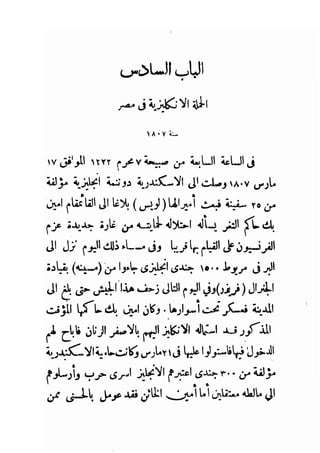 الباب السادس
الحملة الانكليزية فى مصر
سنة ١٨٠٧
فى الساعة السابعة من صبيحة ٧ محرم ١٢٢٢ الموافق ١٧
مارس ١٨٠٧ وصلت الى الاسكندرية دوننمة انجليزية مؤلفة
من ٢٥ سفينة فبعث أميرالها (لويس) بلاغا الى القائمقام امين
بك حاكم الثغر يسأله احتلاله لحمايته من غارة جديدة عزم
الفرنسيون على القيام بها قريبا وفى مساء ذلك اليوم نزل الى
البر فى مربوط ١٥٠٠ جندى انجليزى جاءوا من (مسينه) بقيادة
الجنرال (فريزر) وفي اليوم التالى زحف هذا الجيش حتى بلغ الى
المدينة فعسكر تحت أسوارها. وكان امين بك حاكمها المؤقت
المذكور قد استماله الانكليز اليهم بالاصفر الرنان فاباح لهم
الدخول فيها فاستولوا عليها فى ٢١ مارس وكانت حامية الاسكندرية
مؤلفة من ٣٠٠ جندى اعتبرهم الانجليز اسرى حرب وأرسلوهم
الي مالطه معتقلين أما أمين الخائن فقد عومل بالحسنى ممن